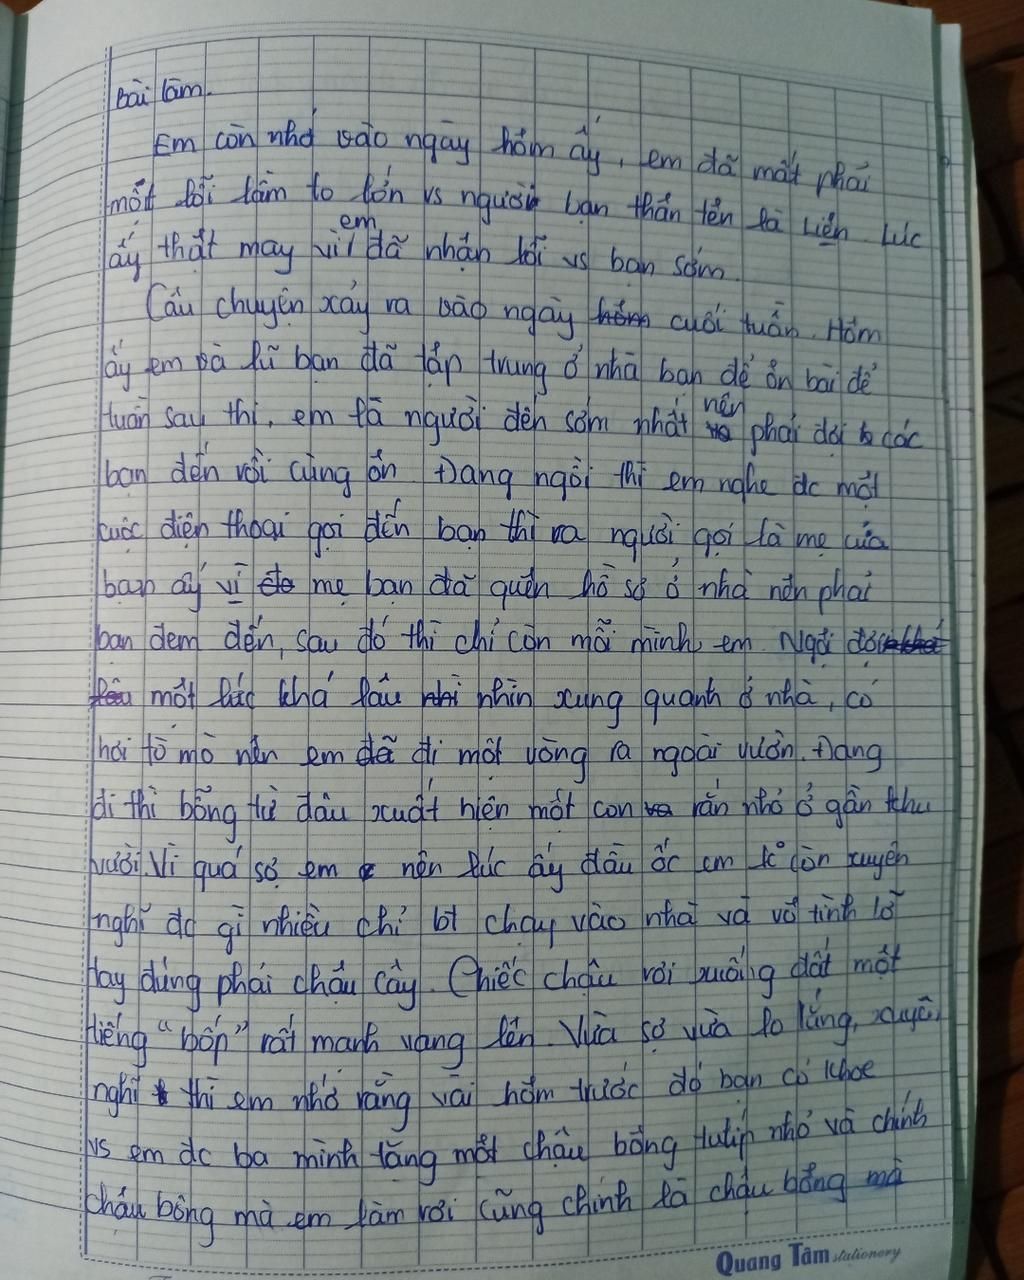 Bài làm.
Em còn nhớ vào ngày hôm ấy, em đã mất phải
một lỗi lầm to lớn vs người bạn thân tên là Liên. Lúc
ấy thật may vì em đã nhận lỗi vs bạn sớm.
Câu chuyện xảy ra vào ngày hôm cuối tuần. Hôm
ấy em và lũ bạn đã tập trung ở nhà bạn để ôn bài để
tuần sau thi, em là người đến sớm nhất nên phải đợi các
bạn đến rồi cùng ôn. Đang ngồi thì em nghe đc một
cuộc điện thoại gọi đến bạn thì ra người gọi là mẹ của
bạn ấy vì mẹ bạn đã quên hồ sơ ở nhà nên phải
bạn đem đến, sau đó thì chỉ còn mỗi mình em. Ngồi đợi
một lúc khá lâu nhìn xung quanh ở nhà, có
hơi tò mò nên em đã đi một vòng ra ngoài vườn. Đang
đi thì bỗng từ đâu xuất hiện một con rắn nhỏ ở gần khu
vười. Vì quá sợ em nên lúc ấy đầu óc em k° còn xuyên
nghĩ đc gì nhiều chỉ bt chạy vào nhà và vô tình lỡ
tay đúng phải chậu cây. Chiếc chậu rơi xuống đất một
tiếng "bốp" rất mạnh vang lên. Vừa sợ vừa lo lắng, xuyên
nghĩ thì em nhớ rằng vài hôm trước đó bạn có khoe
vs em đc ba mình tặng một chậu bông tulip nhỏ và chính
chậu bông mà em làm rơi cũng chính là chậu bông mà
Quang Tâm stationery